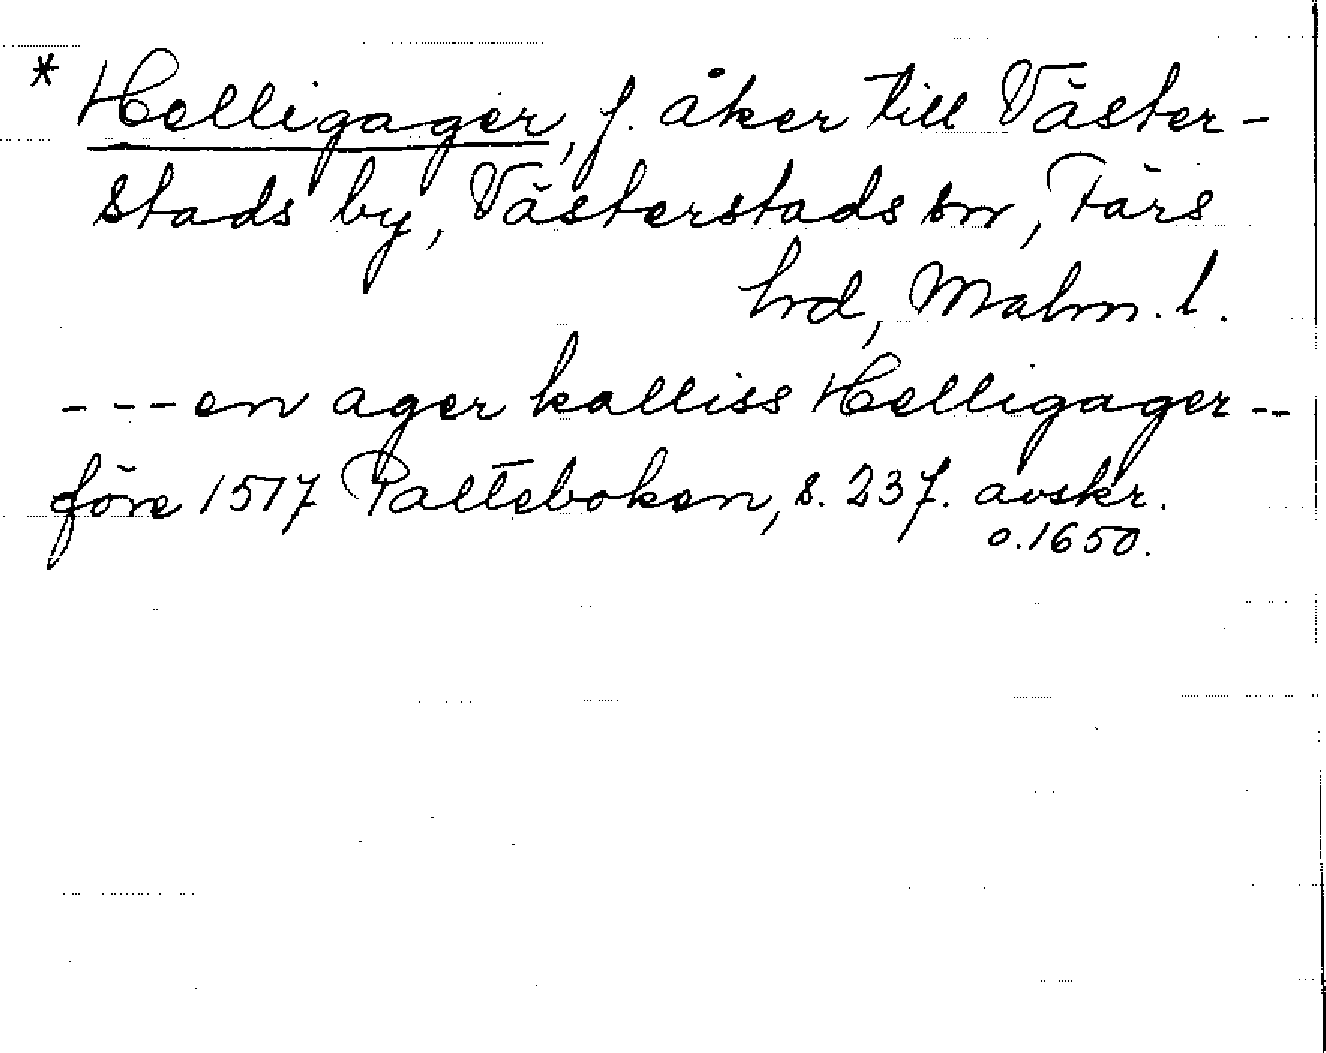 * Helligager, f. åker till Väster-
stads by, Västerstads sn, Färs
hrd, Malm. l.
---en ager kalliss Helligager--
före 1517 Palteboken, s. 237. avskr.
o. 1650.